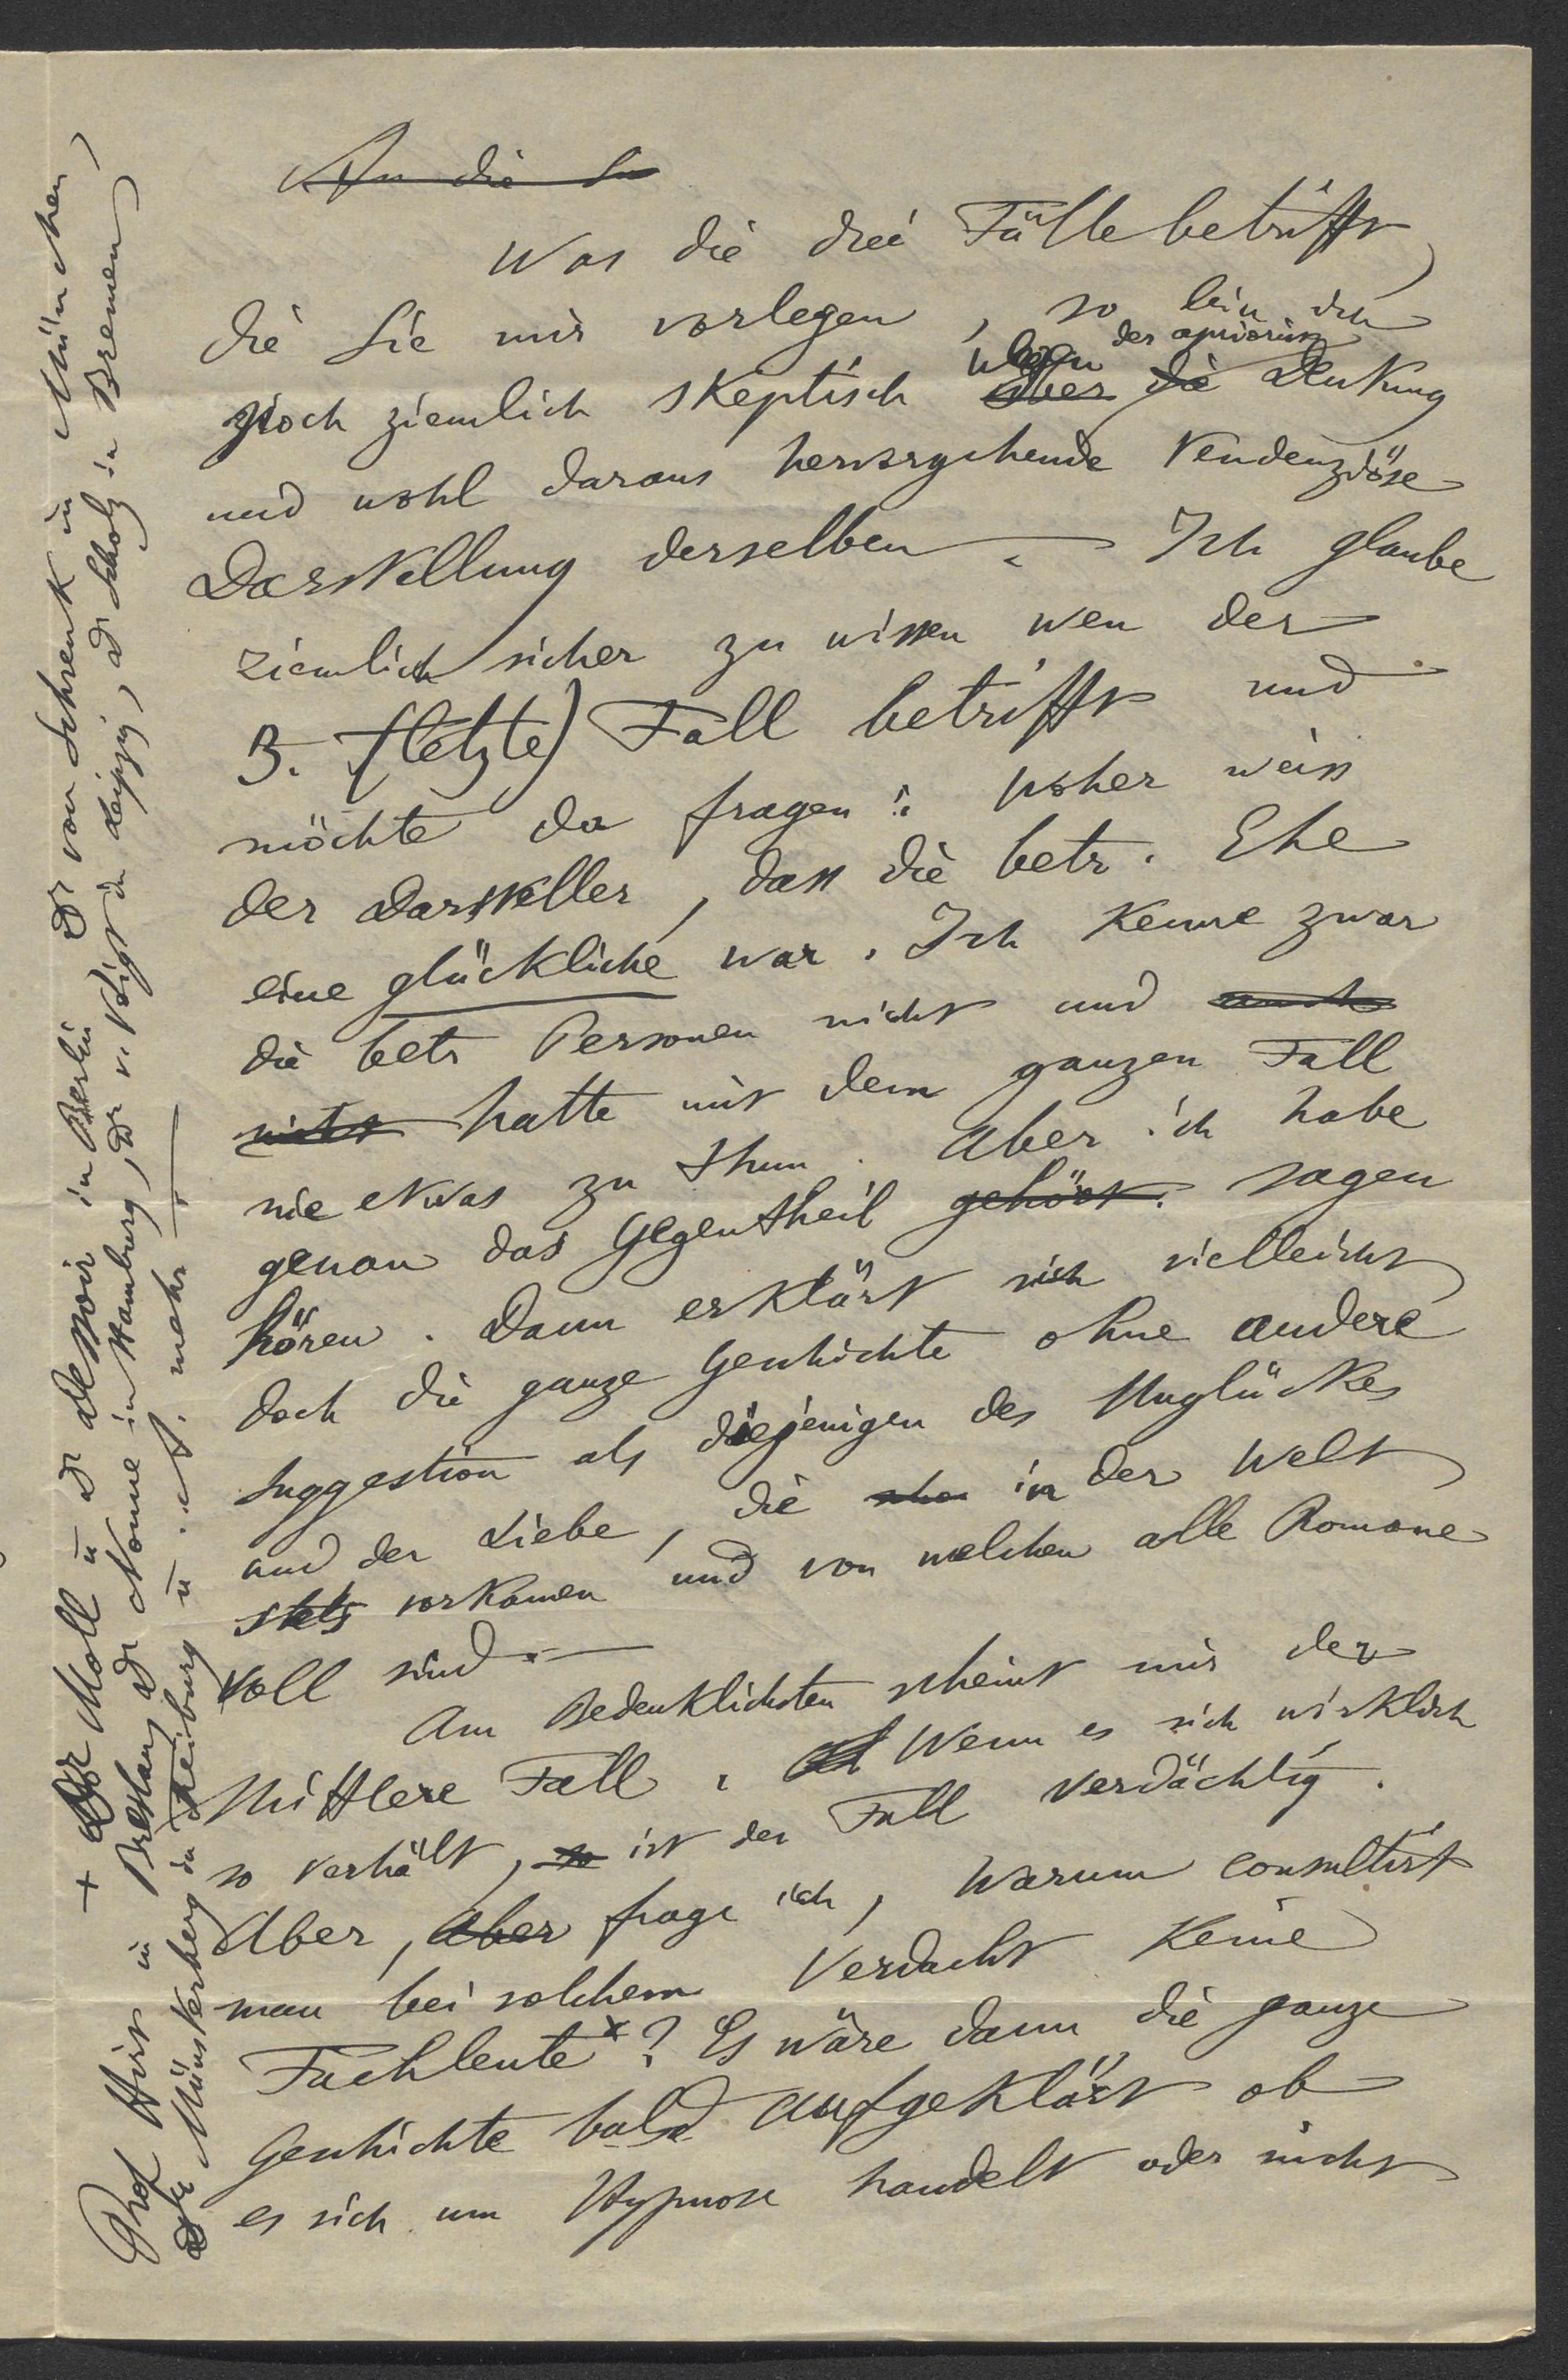 An die
Was die drei Fälle betrifft,
die Sie mir vorlegen, so bin ich
noch ziemlich skeptisch über die wegen der aprioris. Denkung
und wohl daraus hervorgehende tendenziöse
Darstellung derselben. — Ich glaube
ziemlich sicher zu wissen wen der
3. (letzte) Fall betrifft und
möchte da fragen: woher weiss
der Darsteller, dass die betr. Ehe
eine glückliche war. Ich kenne zwar
die betr Personen nicht und auch
nichts hatte mit dem ganzen Fall
nie etwas zu thun. Aber ich habe
genau das Gegentheil gehört. sagen
hören. Dann erklärt sich vielleicht
doch die ganze Geschichte ohne andere
Suggestion als diejenigen des Unglückes
und der Liebe, die in der Welt
stets vorkamen und von welchen alle Romane
voll sind. —
Am Bedenklichsten scheint mir der
Mittlere Fall. Wenn es sich wirklich
so verhält, so ist der Fall verdächtig.
Aber, aber frage ich, warum consultirt
man bei solchem Verdacht keine
Fachleute x? Es wäre dann die ganze
Geschichte bald aufgeklärt ob
es sich um Hypnose handelt oder nicht
+ Dr Moll u Dr Dessoir in Berlin Dr von Schrenk in München,
Prof Hirt in Breslau Dr Nonne in Hamburg, Dr v. Voigt in Leipzig, Dr Scholz in Bremen,
Dr Münsterberg in Freiburg u. A. mehr —